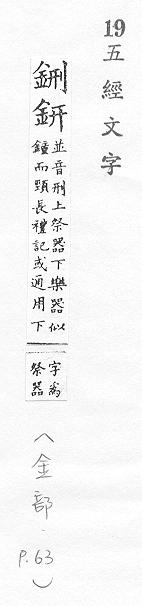 19五經文字
鉶鈃
並音刑上祭器下樂器似
鐘而頸長禮記或通用下
字為
祭器
(金部.
P.63)